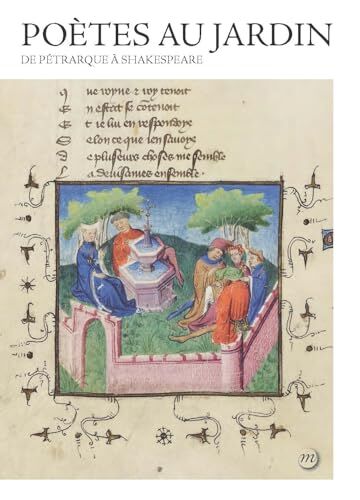 POÈTES AU JARDIN
DE PÉTRARQUE À SHAKESPEARE
Q ue voyne et voy tenoit
E n estat se cōtenoit
E t ie lui en respondoye
S elon ce que ien savoye
D e plusieurs choses me semble
L a devisames ensemble
m